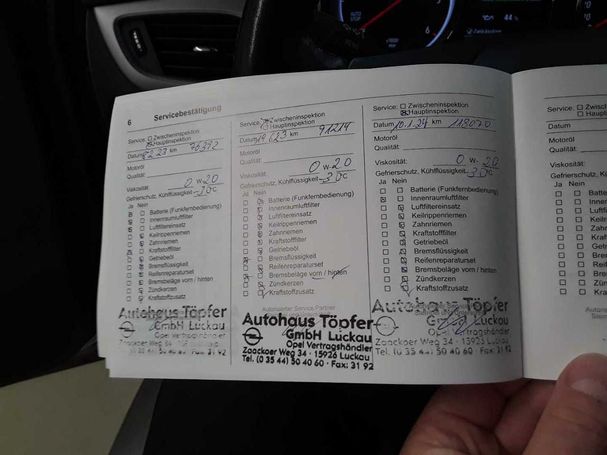 6 Servicebestätigung
Service: Zwischeninspektion
Hauptinspektion
Datum 2.23 km 76372
Motoröl
Qualität:
Viskosität: 0 W-20
Gefrierschutz, Kühlflüssigkeit -30C
Ja Nein
Batterie (Funkfernbedienung)
Innenraumluftfilter
Luftfiltereinsatz
Keilrippenriemen
Zahnriemen
Kraftstofffilter
Getriebeöl
Bremsflüssigkeit
Reifenreparaturset
Bremsbeläge vorn / hinten
Zündkerzen
Kraftstoffzusatz
Autohaus Töpfer
GmbH Luckau
Opel Vertragshändler
Zaackoer Weg 34
Service: Zwischeninspektion
Hauptinspektion
Datum km 91214
Motoröl
Qualität:
Viskosität: 0 W-20
Gefrierschutz, Kühlflüssigkeit -30C
Ja Nein
Batterie (Funkfernbedienung)
Innenraumluftfilter
Luftfiltereinsatz
Keilrippenriemen
Zahnriemen
Kraftstofffilter
Getriebeöl
Bremsflüssigkeit
Reifenreparaturset
Bremsbeläge vorn / hinten
Zündkerzen
Kraftstoffzusatz
Autorisierter Service Partner
Autohaus Töpfer
GmbH Luckau
Opel Vertragshändler
Zaackoer Weg 34 · 15926 Luckau
Tel. (0 35 44) 50 40 60 · Fax: 31 92
Service: Zwischeninspektion
Hauptinspektion
Datum 10.1.24 km 118070
Motoröl
Qualität:
Viskosität: 0 W-20
Gefrierschutz, Kühlflüssigkeit -30C
Ja Nein
Batterie (Funkfernbedienung)
Innenraumluftfilter
Luftfiltereinsatz
Keilrippenriemen
Zahnriemen
Kraftstofffilter
Getriebeöl
Bremsflüssigkeit
Reifenreparaturset
Bremsbeläge vorn / hinten
Zündkerzen
Kraftstoffzusatz
Autohaus Töpfer
GmbH Luckau
Opel Vertragshändler
Zaackoer Weg 34 · 15926 Luckau
Tel. (0 35 44) 50 40 60 · Fax: 31 92
Service:
Datum
Motoröl
Qualität:
Viskosität:
Gefrierschutz,
Ja Nein